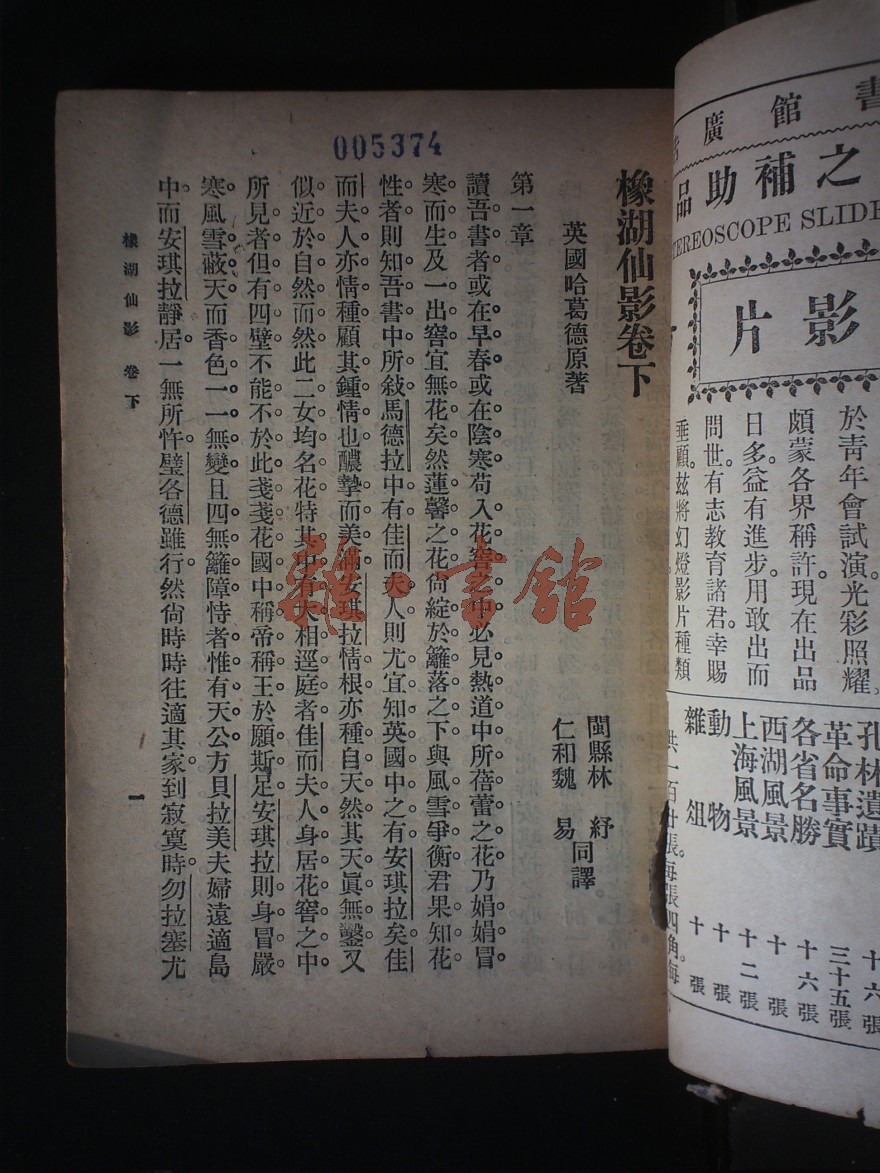 005374
橡湖仙影卷下
英國哈葛德原著
閩縣林 紓
仁和魏 易
同譯
第一章
讀吾書者或在早春或在陰寒苟入花窖之中必見熱道中所蓓蕾之花乃娟娟冒
寒而生及一出窖宜無花矣然蓮馨之花尙綻於籬落之下與風雪爭衡君果知花
性者則知吾書中所敍馬德拉中有佳而夫人則尤宜知英國中之有安琪拉矣佳
而夫人亦情種顧其鍾情也醲摯而美滿安琪拉情根亦種自天然其天眞無鑿又
似近於自然而然此二女均名花特其中有大相逕庭者佳而夫人身居花窖之中
所見者但有四壁不能不於此戔戔花國中稱帝稱王於願斯足安琪拉則身冒嚴
寒風雪蔽天而香色一一無變且四無籬障恃者惟有天公方貝拉美夫婦遠適島
中而安琪拉靜居一無所忤璧各德雖行然尙時時往適其家到寂寞時勿拉塞尤
橡湖仙影 卷下
一
雜·書館
書館廣
之補助品
STEREOSCOPE SLIDE
影片
於靑年會試演光彩照耀。
頗蒙各界稱許。現在出品
日多。益有進步。用敢出而
問世。有志教育諸君。幸賜
垂顧。玆將幻燈影片種類
孔林遺蹟 十六張
革命事實 三十五張
各省名勝 十六張
西湖風景 十張
上海風景 十二張
動物 十張
雜俎 十張